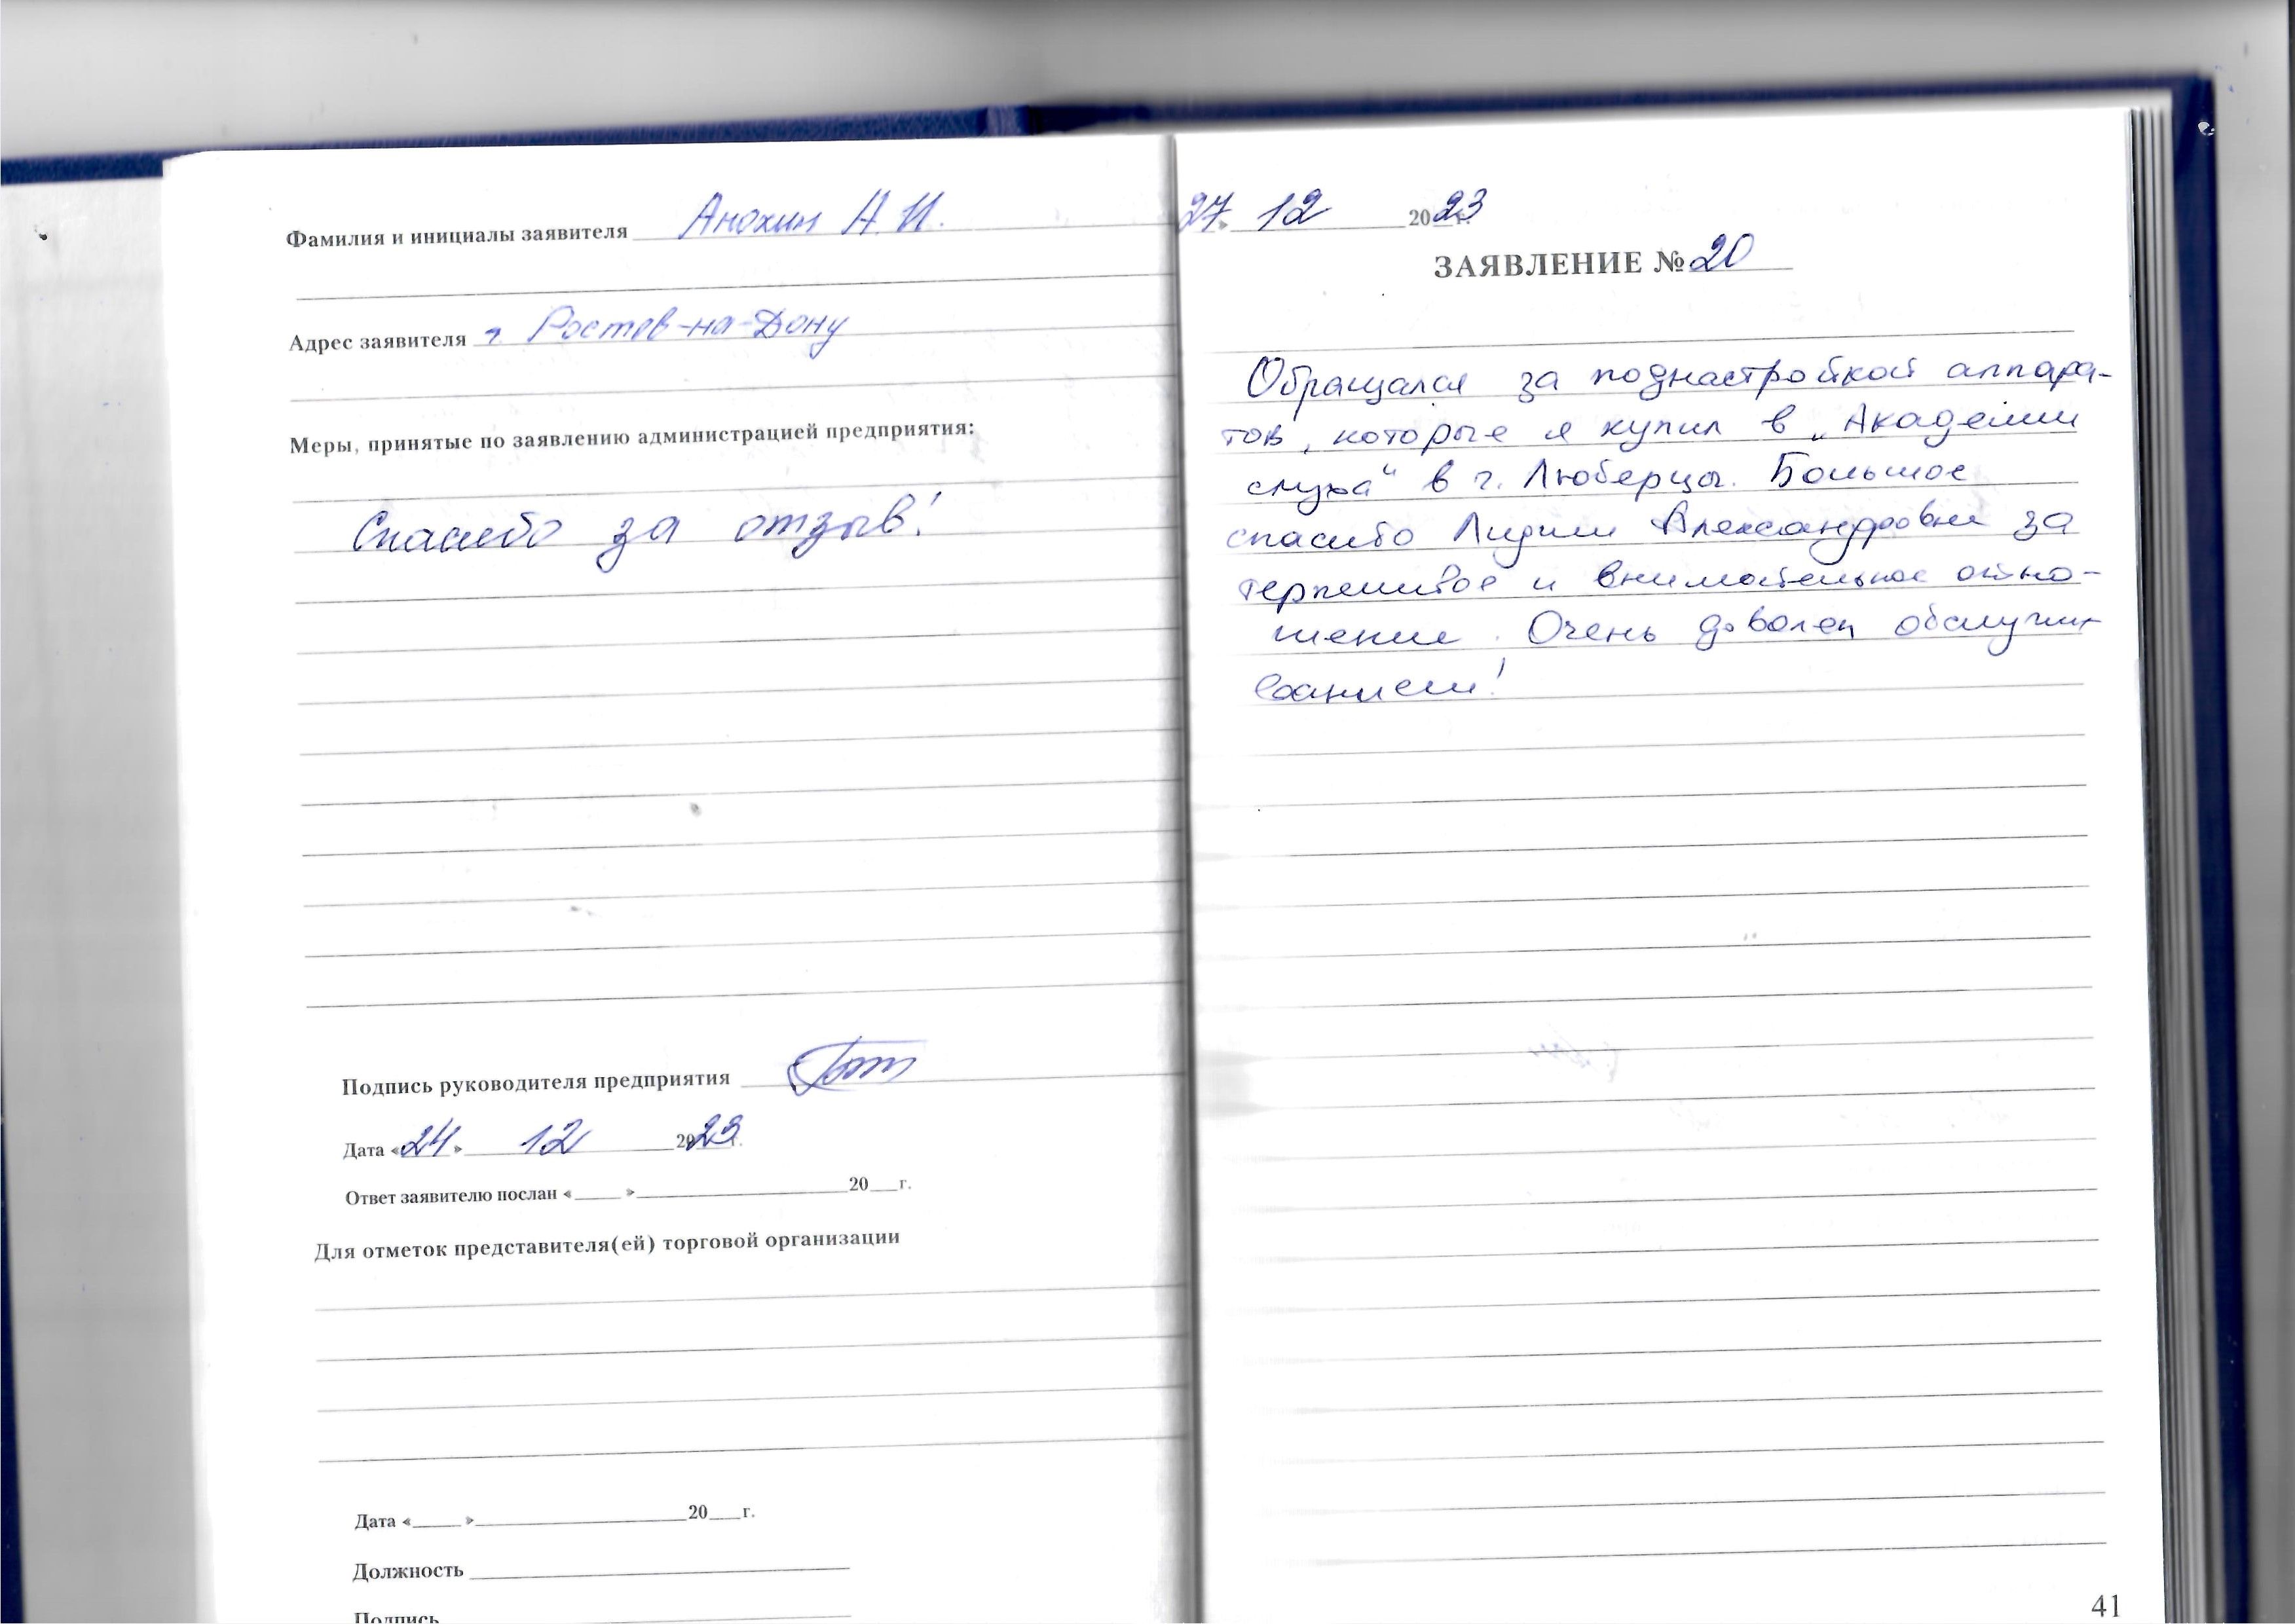 Фамилия и инициалы заявителя Анохин А.И.
Адрес заявителя г. Ростов-на-Дону
Меры, принятые по заявлению администрацией предприятия:
Спасибо за отзыв!
Подпись руководителя предприятия
Дата «24» 12 2023 г.
Ответ заявителю послан «____» ____ 20__г.
Для отметок представителя(ей) торговой организации
Дата «____» ____ 20__г.
Должность
Подпись
27» 12 2023 г.
ЗАЯВЛЕНИЕ № 20
Обращался за поднастройкой аппара-
тов, которые я купил в „Академии
слуха“ в г. Люберцы. Большое
спасибо Лидии Александровне за
терпеливое и внимательное отно-
шение. Очень доволен обслужи-
ванием!
41